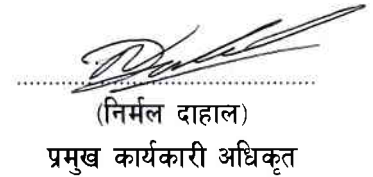 (निर्मल दाहाल)
प्रमुख कार्यकारी अधिकृत